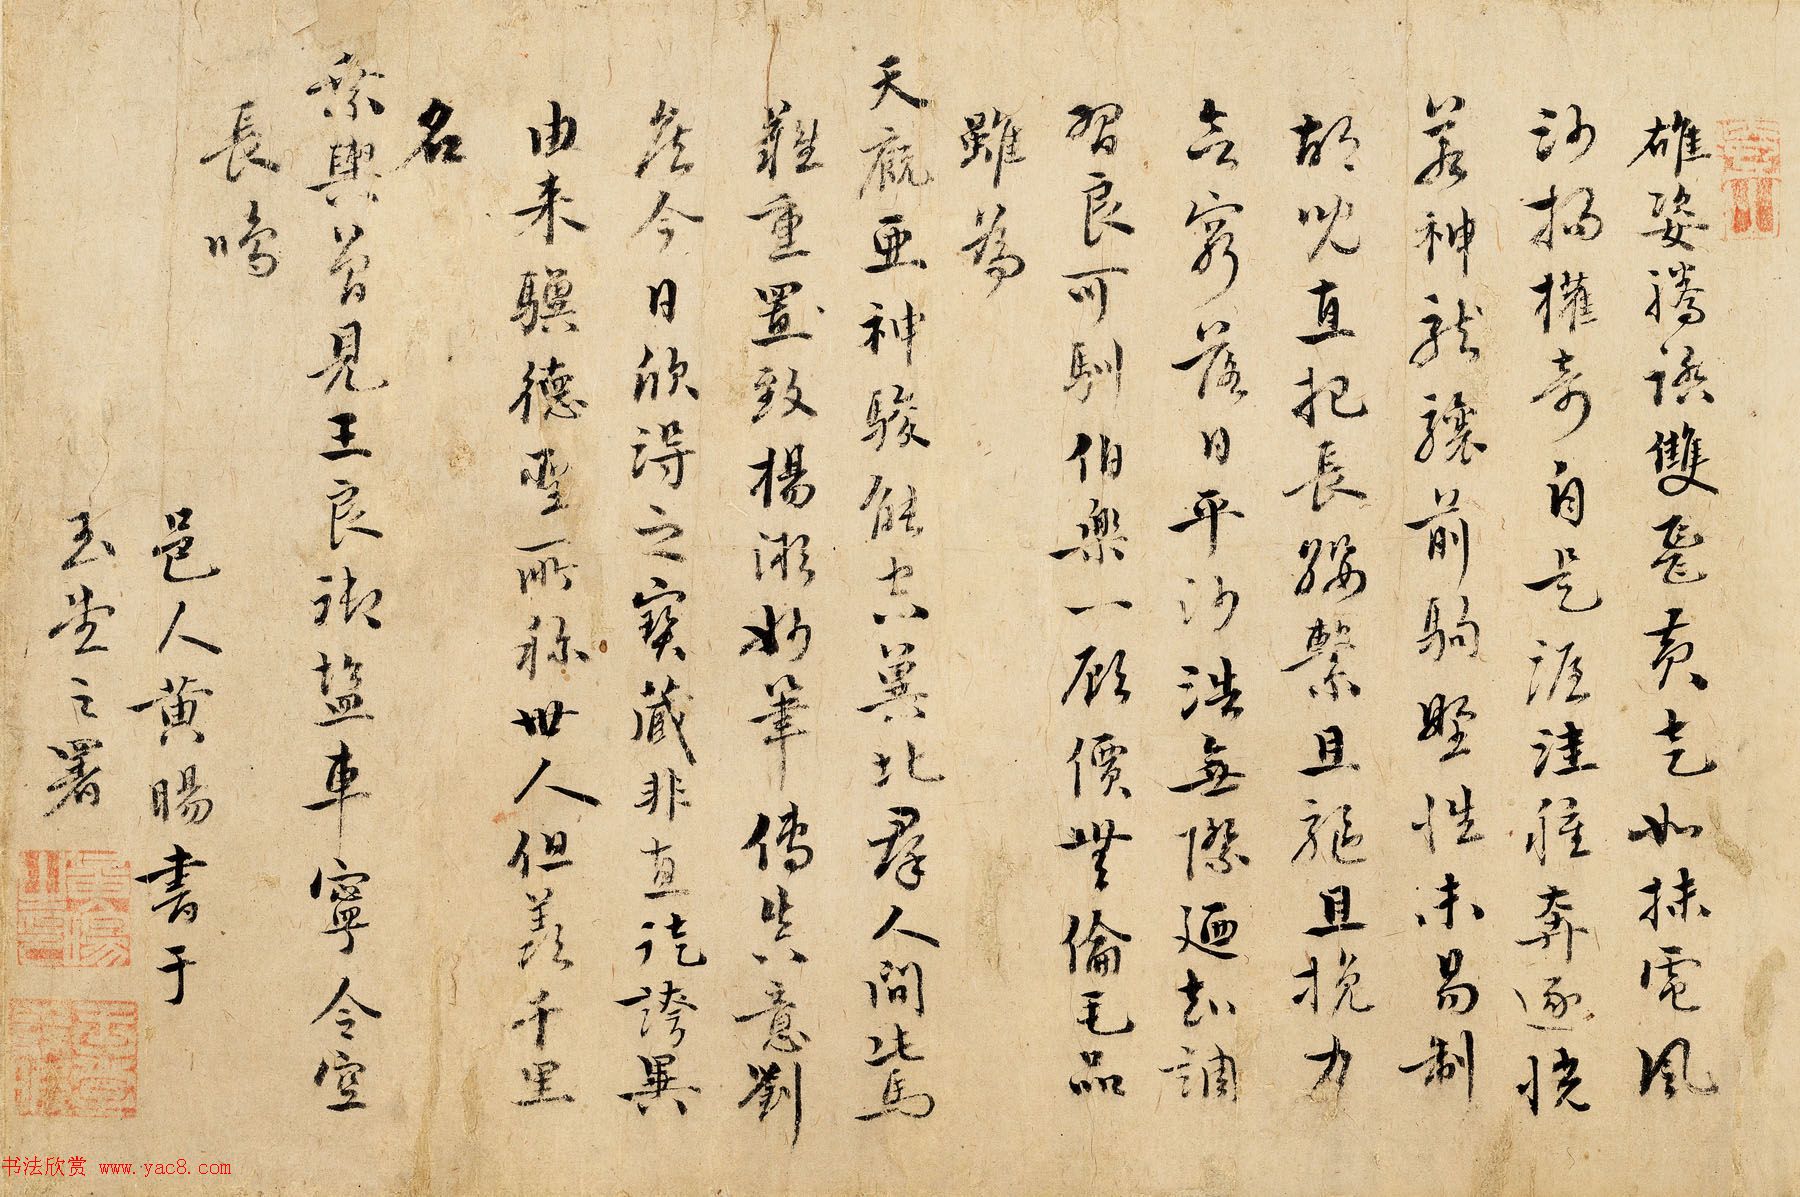 雄姿騰踏雙飛黃走如抹電風
沙揚權奇自是渥洼種奔逐恍
若神龍驤前駒野性未易制
胡兒直把長韁繫且驅且挽力
無窮落日平沙浩無際廻知調
習良可馴伯樂一顧價無倫毛品
雖為
天廄亞神駿能空冀北群人間此馬
難重置致楊漸妙筆傳其意劉
侯今日欣得之寶藏非直託誇異
由来驥德聖所称世人但羨千里
名
乘輿曾見王良御塩車寧令空
長鳴
邑人黄暘書于
玉堂之署
书法欣赏 www.yac8.com